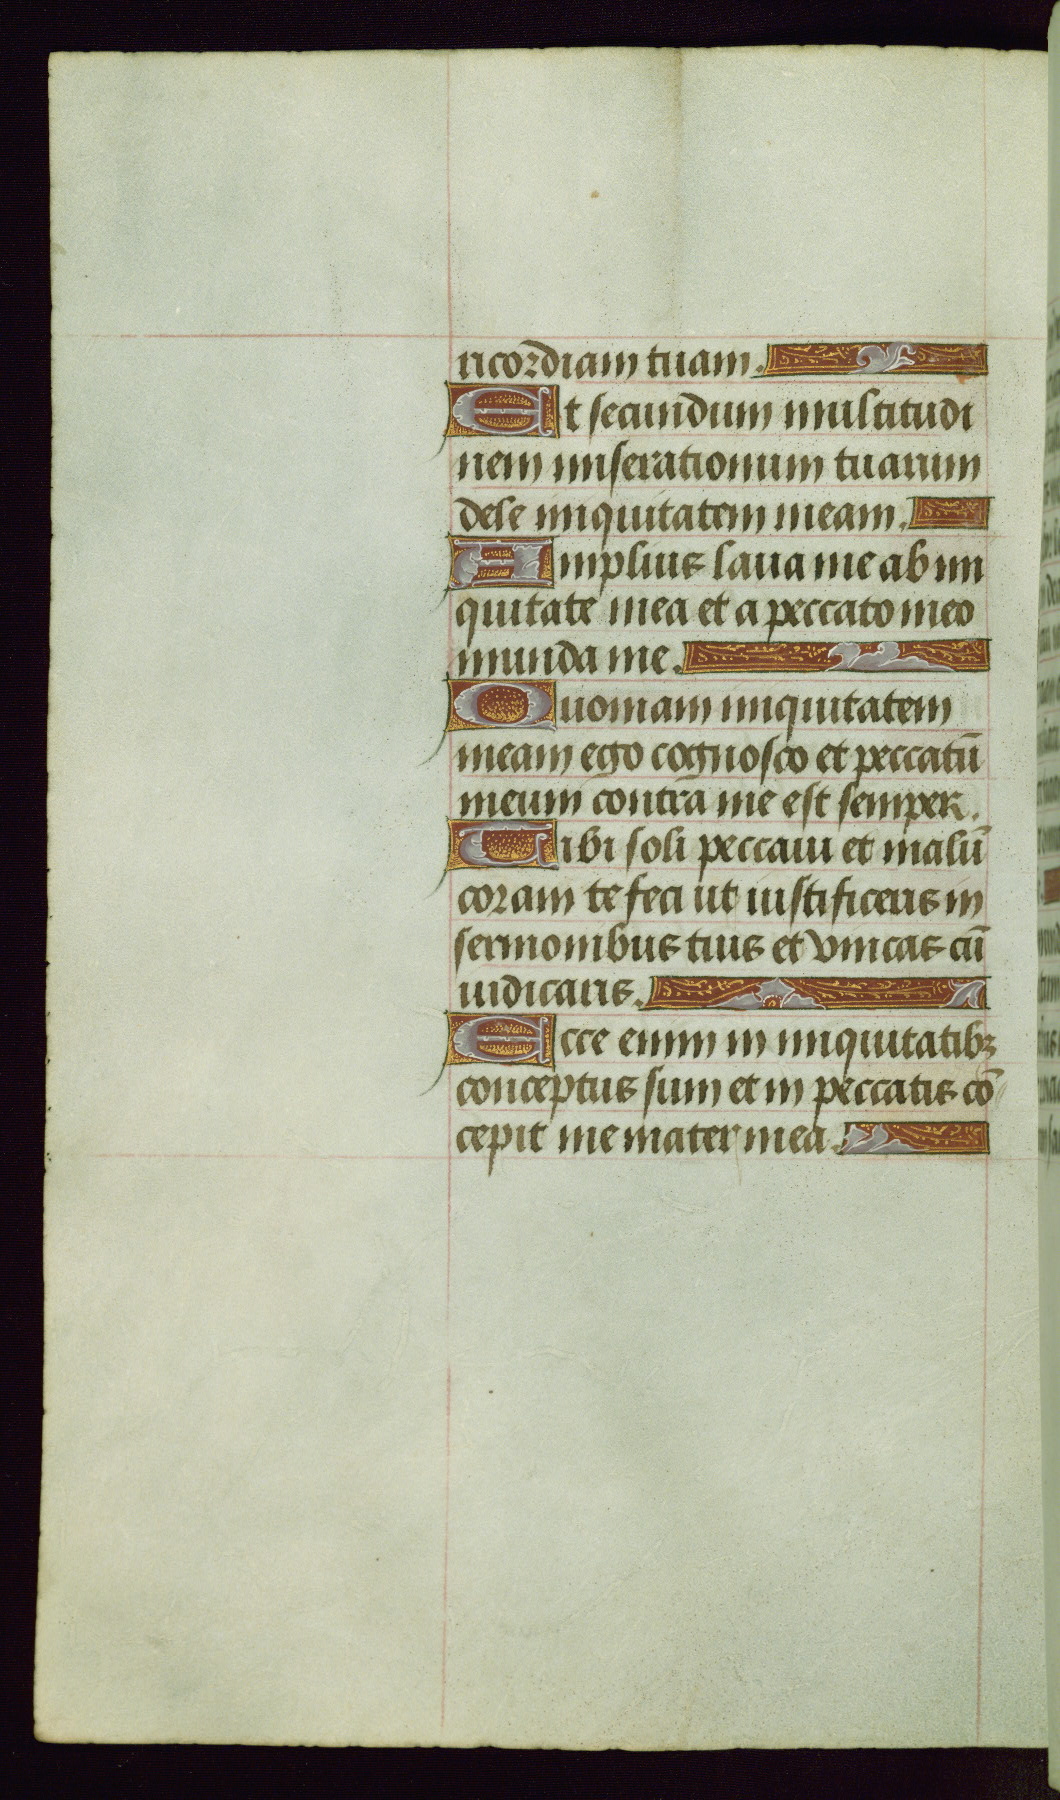 ricordiam tuam.
Et secundum multitudi
nem miserationum tuarum
dele iniquitatem meam.
Amplius laua me ab ini
quitate mea et a peccato meo
munda me.
Quoniam iniquitatem
meam ego cognosco et peccatū
meum contra me est semper.
Tibi soli peccaui et malū
coram te feci ut iustificeris in
sermonibus tuis et vincas cū
iudicaris.
Ecce enim in iniquitatibꝫ
conceptus sum et in peccatis cō
cepit me mater mea.